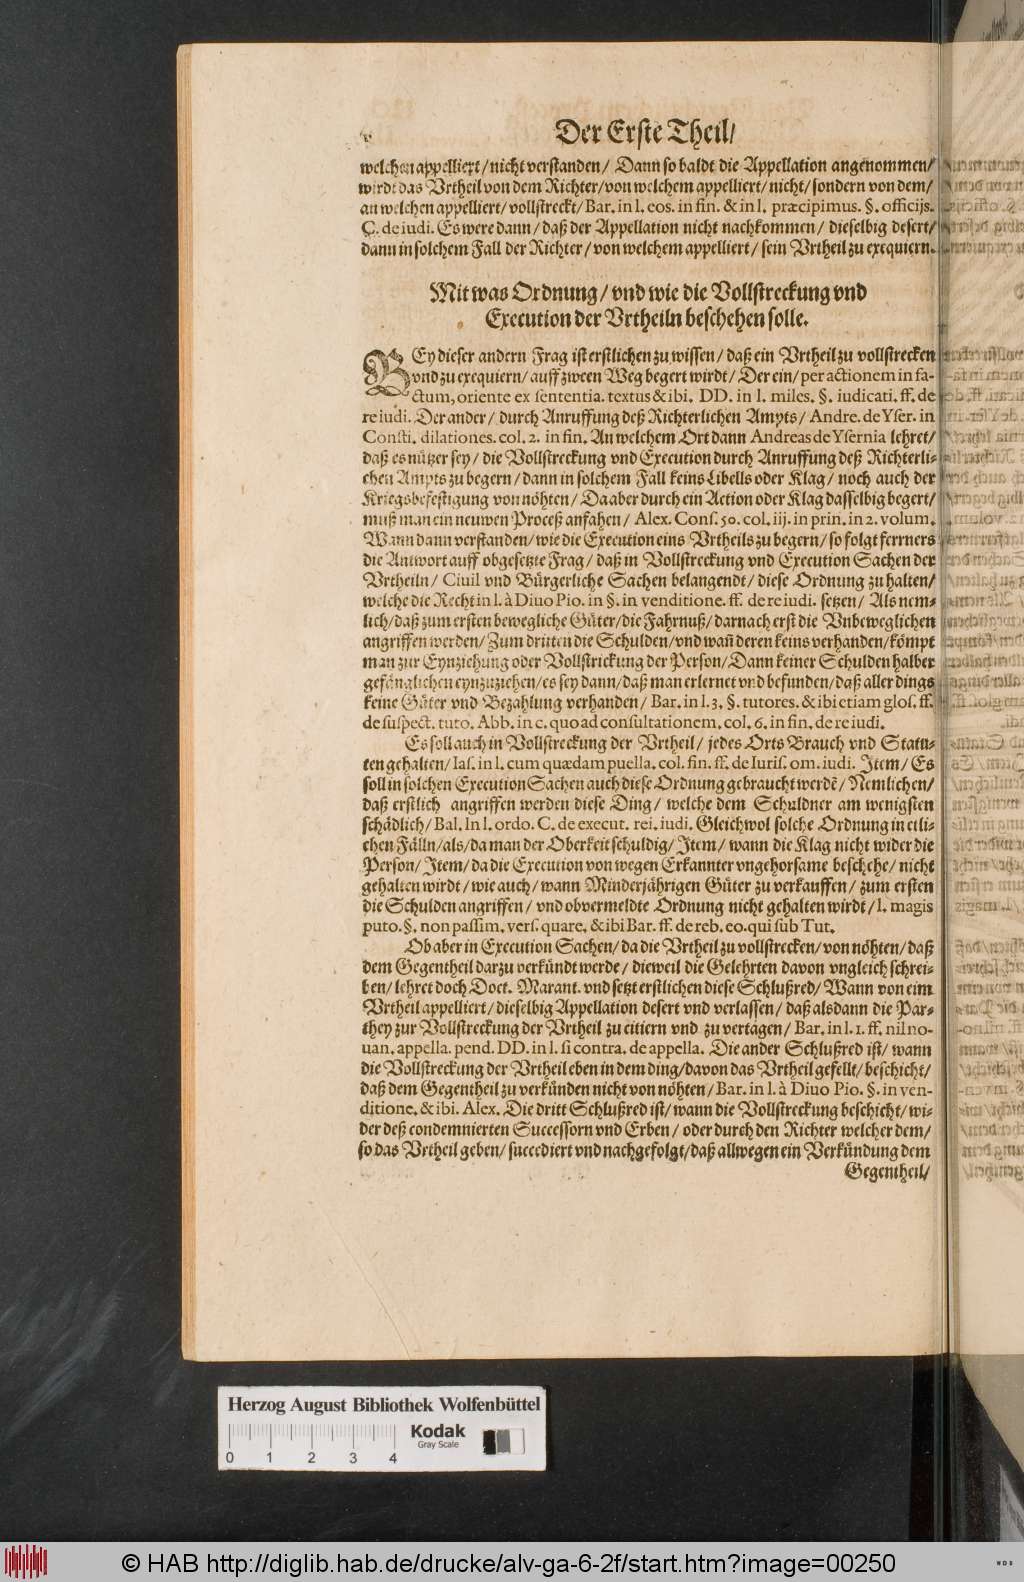 Der Erste Theil/
welchen appelliert/ nicht verstanden/ Dann so baldt die Appellation angenommen/
wirdt das Vrtheil von dem Richter/ von welchem appelliert/ nicht/ sondern von dem/
an welchen appelliert/ vollstreckt/ Bar. in l. eos. in fin. & in l. præcipimus. §. officijs.
C. de iudi. Es were dann/ daß der Appellation nicht nachkommen/ dieselbig desert/
dann in solchem Fall der Richter/ von welchem appelliert/ sein Vrtheil zu exequiern.
Mit was Ordnung/ vnd wie die Vollstreckung vnd
Execution der Vrtheiln beschehen solle.
BEy dieser andern Frag ist erstlichen zu wissen/ daß ein Vrtheil zu vollstrecken
vnd zu exequiern/ auff zween Weg begert wirdt/ Der ein/ per actionem in fa-
ctum, oriente ex sententia. textus & ibi. DD. in l. miles. §. iudicati. ff. de
re iudi. Der ander/ durch Anruffung deß Richterlichen Ampts/ Andre. de Yser. in
Consti. dilationes. col. 2. in fin. An welchem Ort dann Andreas de Ysernia lehret/
daß es nützer sey/ die Vollstreckung vnd Execution durch Anruffung deß Richterli-
chen Ampts zu begern/ dann in solchem Fall keins Libells oder Klag/ noch auch der
Kriegsbefestigung von nöhten/ Da aber durch ein Action oder Klag dasselbig begert/
muß man ein neuwen Proceß anfahen/ Alex. Cons. 50. col. iij. in prin. in 2. volum.
Wann dann verstanden/ wie die Execution eins Vrtheils zu begern/ so folgt ferrners
die Antwort auff obgesetzte Frag/ daß in Vollstreckung vnd Execution Sachen der
Vrtheiln/ Ciuil vnd Bürgerliche Sachen belangendt/ diese Ordnung zu halten/
welche die Recht in l. à Diuo Pio. in §. in venditione. ff. de re iudi. setzen/ Als nem-
lich/ daß zum ersten bewegliche Güter/ die Fahrnuß/ darnach erst die Vnbeweglichen
angriffen werden/ Zum dritten die Schulden/ vnd wañ deren keins verhanden/ kömpt
man zur Eynziehung oder Vollstrickung der Person/ Dann keiner Schulden halber
gefänglichen eynzuziehen/ es sey dann/ daß man erlernet vnd befunden/ daß aller dings
keine Güter vnd Bezahlung verhanden/ Bar. in l. 3. §. tutores. & ibi etiam glos. ff.
de suspect. tuto. Abb. in c. quo ad consultationem. col. 6. in fin. de re iudi.
Es soll auch in Vollstreckung der Vrtheil/ jedes Orts Brauch vnd Statu-
ten gehalten/ Ias. in l. cum quædam puella. col. fin. ff. de Iuris. om. iudi. Item/ Es
soll in solchen Execution Sachen auch diese Ordnung gebraucht werdẽ/ Nemlichen/
daß erstlich angriffen werden diese Ding/ welche dem Schuldner am wenigsten
schädlich/ Bal. In l. ordo. C. de execut. rei. iudi. Gleichwol solche Ordnung in etli-
chen Fälln/ als/ da man der Oberkeit schuldig/ Item/ wann die Klag nicht wider die
Person/ Item/ da die Execution von wegen Erkannter vngehorsame beschehe/ nicht
gehalten wirdt/ wie auch/ wann Minderjährigen Güter zu verkauffen/ zum ersten
die Schulden angriffen/ vnd obvermeldte Ordnung nicht gehalten wirdt/ l. magis
puto. §. non passim. vers. quare. & ibi Bar. ff. de reb. eo. qui sub Tut.
Ob aber in Execution Sachen/ da die Vrtheil zu vollstrecken/ von nöhten/ daß
dem Gegentheil darzu verkündt werde/ dieweil die Gelehrten davon vngleich schrei-
ben/ lehret doch Doct. Marant. vnd setzt erstlichen diese Schlußred/ Wann von eim
Vrtheil appelliert/ dieselbig Appellation desert vnd verlassen/ daß alsdann die Par-
they zur Vollstreckung der Vrtheil zu citiern vnd zu vertagen/ Bar. in l. 1. ff. nil no-
uan. appella. pend. DD. in l. si contra. de appella. Die ander Schlußred ist/ wann
die Vollstreckung der Vrtheil eben in dem ding/ davon das Vrtheil gefellt/ beschicht/
daß dem Gegentheil zu verkünden nicht von nöhten/ Bar. in l. à Diuo Pio. §. in ven-
ditione. & ibi. Alex. Die dritt Schlußred ist/ wann die Vollstreckung beschicht/ wi-
der deß condemnierten Successorn vnd Erben/ oder durch den Richter welcher dem/
so das Vrtheil geben/ succediert vnd nachgefolgt/ daß allwegen ein Verkündung dem
Gegentheil/
Herzog August Bibliothek Wolfenbüttel
Kodak
Gray Scale
0 1 2 3 4
© HAB http://diglib.hab.de/drucke/alv-ga-6-2f/start.htm?image=00250
WDB